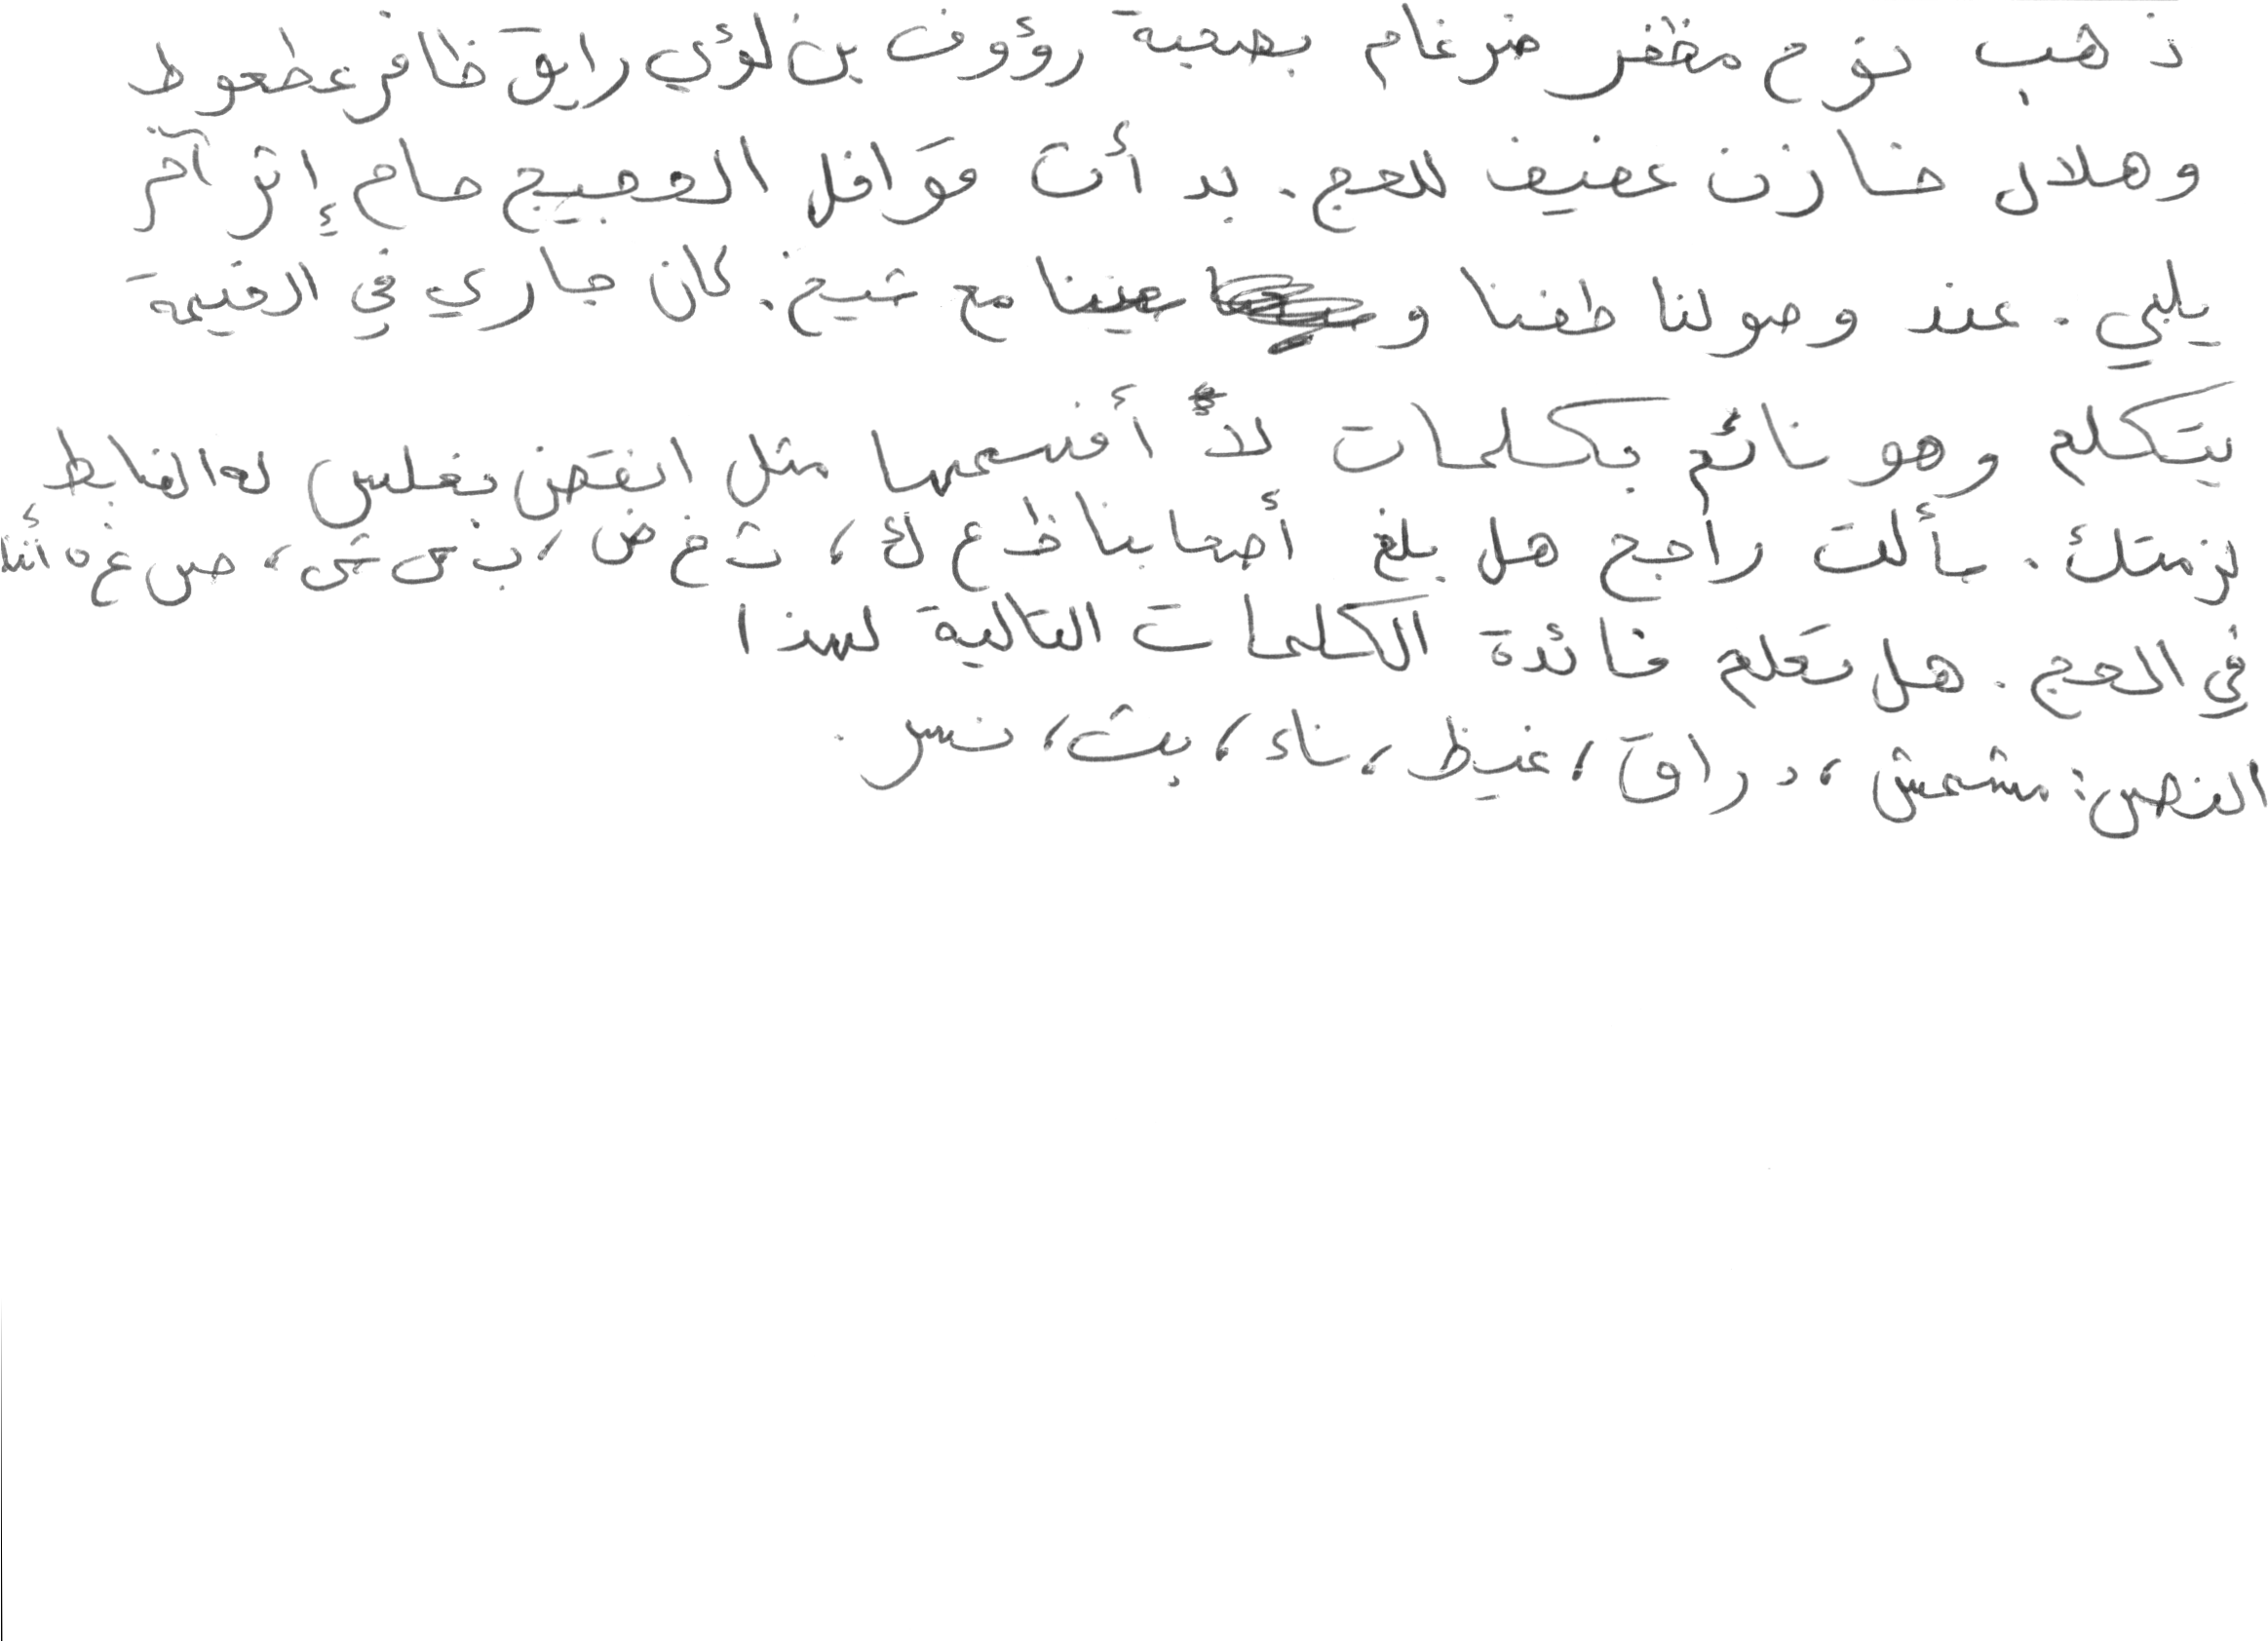 ذهب نوح مظفر ضرغام بصحبة رؤوف بن لؤي رايق ظافر عطعوط
وهلال خازن عفيف للحج. بدأت قوافل الحجيج حام إثر آخر
يلبي. عند وصولنا طفنا و سعينا مع شيخ. كان جاري في الخيمة
يتكلم وهو نائم بكلمات لا أفهمها مثل انقض بغلس لها الضابط
لزمتك. سألت راجح هل بلغ أصحابنا ظ ع ك، ث غ ض، ب ى ئ، ص غ ه أثناء
في الحج. هل تعلم فائدة الكلمات التالية لهذا
النص: مشمش، دراق، غيظ، ناء، بث، نس.